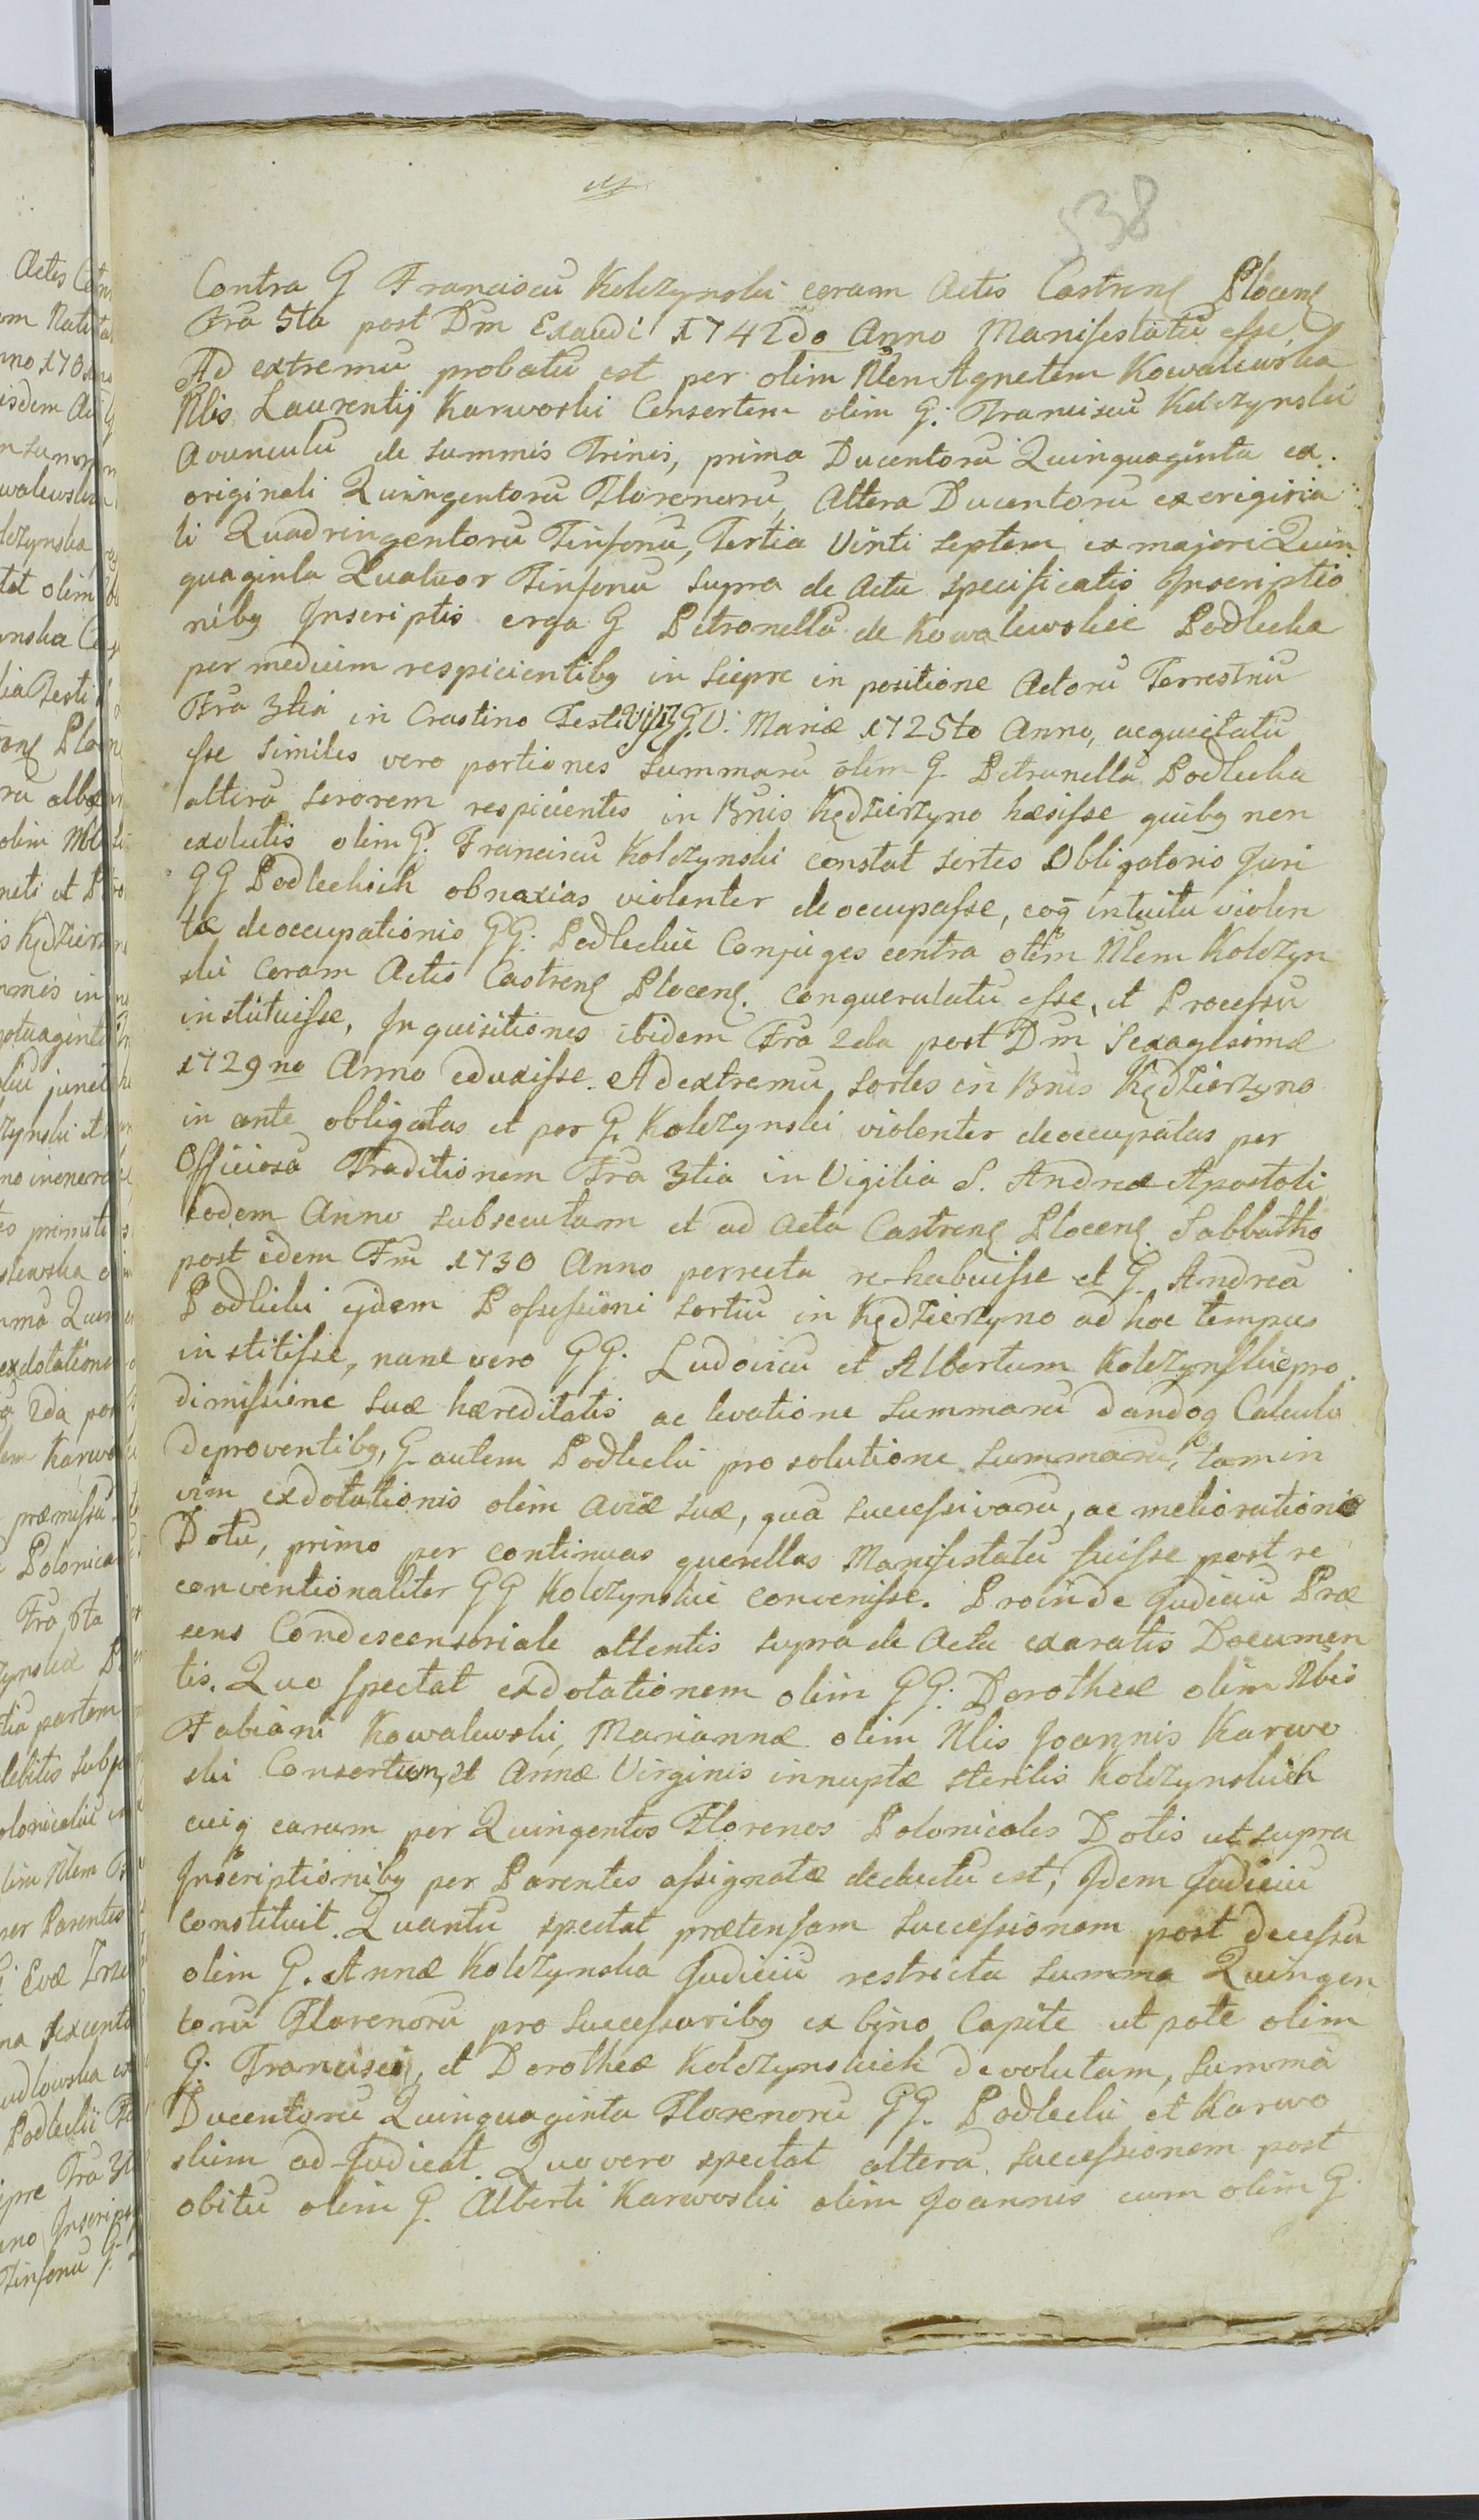 538
Contra G Franciscũ Kolczynski coram Actis Castren Plocen
Fra 5ta post Dm Exaudi 1742do Anno Manifestatũ esse,
Ad extremũ probatũ est per olim Nlen Agnetem Kowalewska
Nlis Laurentij Karwoski Consortem olim G. Franciscũ Kolczynski
Avunculũ de summis Trinis, prima Ducentorũ Quinquaginta ex
originali Quingentorũ Florenorũ, Altera Ducentorũ ex origina
li Quadringentorũ Tinfonũ, Tertia Vinti septem ex majori Quin
quaginta Quatuor Tinfonũ supra de Actu specificatis Inscriptio
nibq Inscriptis erga G Petronellã de Kowalewskie Podlecka
per medium respicientibq in Siepre in positione Actorũ Terrestriũ
Fra 3tia in Crastino Festi Visit. B. V. Mariæ 1725to Anno, acquietatũ
esse similes vero portiones summarũ olim G. Petrunellã Podlecka
alterã sororem respicientes in Bnis Kędzierzyno hæsisse quibq non
exolutis olim G. Franciscũ Kolczynski constat sortes Obligatorio Juri
GG Podleckich obnaxias violenter deoccupasse, eoq intuitu violen
tæ deoccupationis GG. Podleckie Conjuges contra olim Nlem Kolczyn
ski Coram Actis Castren Plocen. conquerulatũ esse, et Processũ
instituisse, Inquisitiones ibidem Fra 2da post Dm Sexagesimæ
1729no Anno eduxisse. Ad extremũ, sortes in Bnis Kędzierzyno
in ante obligatas et per G. Kolczynski violenter deoccupatas per
Officiosã Traditionem Fra 3tia in Vigilia S. Andreæ Apostoli
eodem Anno subsecutam et ad Acta Castren Plocen. Sabbatho
post idem Fm 1730 Anno perrecta re-habuisse et G. Andreã
Podlicki ejdem Possessioni sortiũ in Kędzierzyno ad hoc tempus
institisse, nunc vero GG. Ludovicũ et Albertum Kolczynskie pro
dimissione suæ hæreditatis ac levatione summarũ dandoq Calculo
deproventibq, G. autem Podlecki pro solutione summarũ, tam in
vim exdotationis olim aviæ suæ, quã successivarũ, ac meliorationis
Dotũ, primo per continuas querellas Manifestatũ fuisse post re
conventionaliter GG Kolczynskie convenisse. Proinde Judiciũ Præ
sens Condescensoriale attentis supra de Actu exaratis Documen
tis. Quo spectat exdotationem olim GG. Dorotheæ olim Nbis
Fabiani Kowalewski, Mariannæ olim Nlis Joannis Karwo
ski Consortum, et Annæ Virginis innuptæ sterilis Kolczynskich
cuiq earum per Quingentos Florenos Polonicales Dotis ut supra
Inscriptionibq per Parentes assignatæ deductũ est, Idem Judiciũ
constituit. Quantũ spectat prætensam successionem post decessũ
olim G. Annæ Kolczynska Judiciũ restricta summa Quingen
torũ Florenorũ pro Successoribq ex bino Capite ut pote olim
G. Francisci, et Dorotheæ Kolczynskich devolutam, summã
Ducentorũ Quinquaginta Florenorũ GG. Podlecki et Karwo
skim ad-Judicat. Quo vero spectat alterã successionem post
obitũ olim G. Alberti Karwoski olim Joannis cum olim G